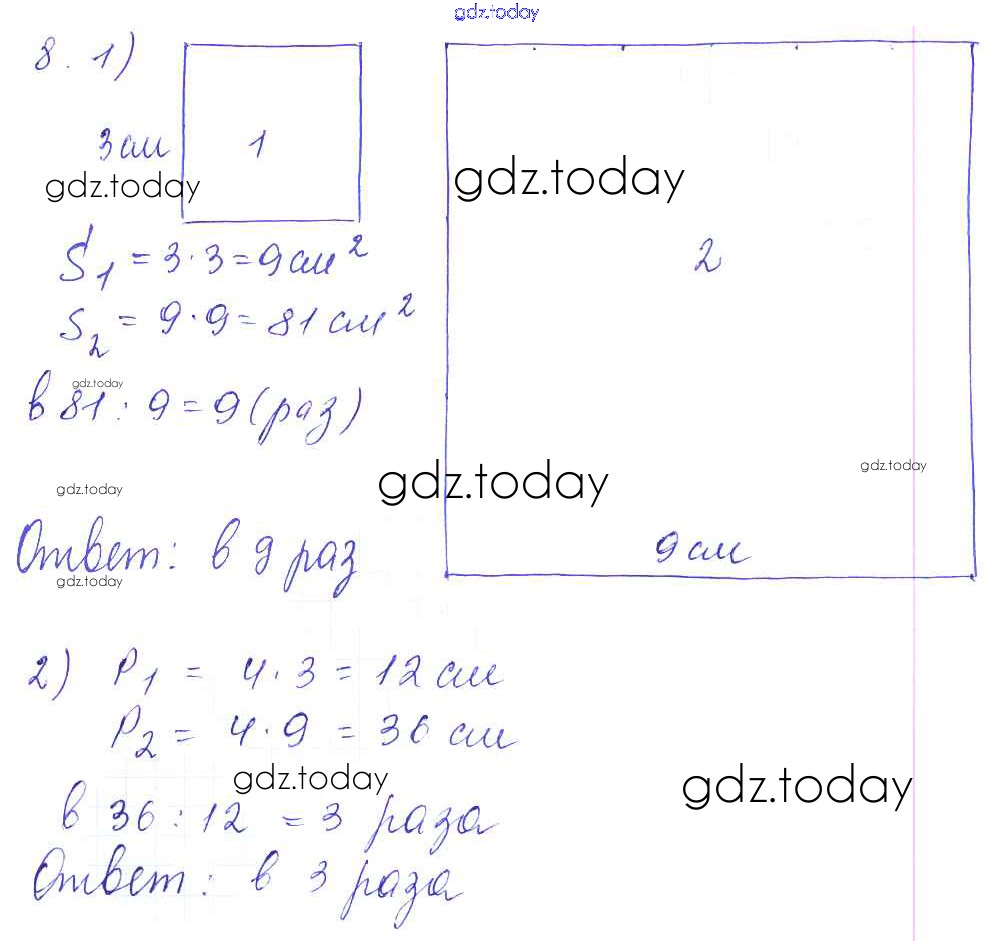 gdz.today
8. 1)
3 см
1
gdz.today
gdz.today
2
S₁ = 3 · 3 = 9 см²
S₂ = 9 · 9 = 81 см²
gdz.today
в 81 : 9 = 9 (раз)
gdz.today
gdz.today
gdz.today
Ответ: в 9 раз
9 см
gdz.today
2) P₁ = 4 · 3 = 12 см
P₂ = 4 · 9 = 36 см
gdz.today
gdz.today
в 36 : 12 = 3 раза
Ответ: в 3 раза